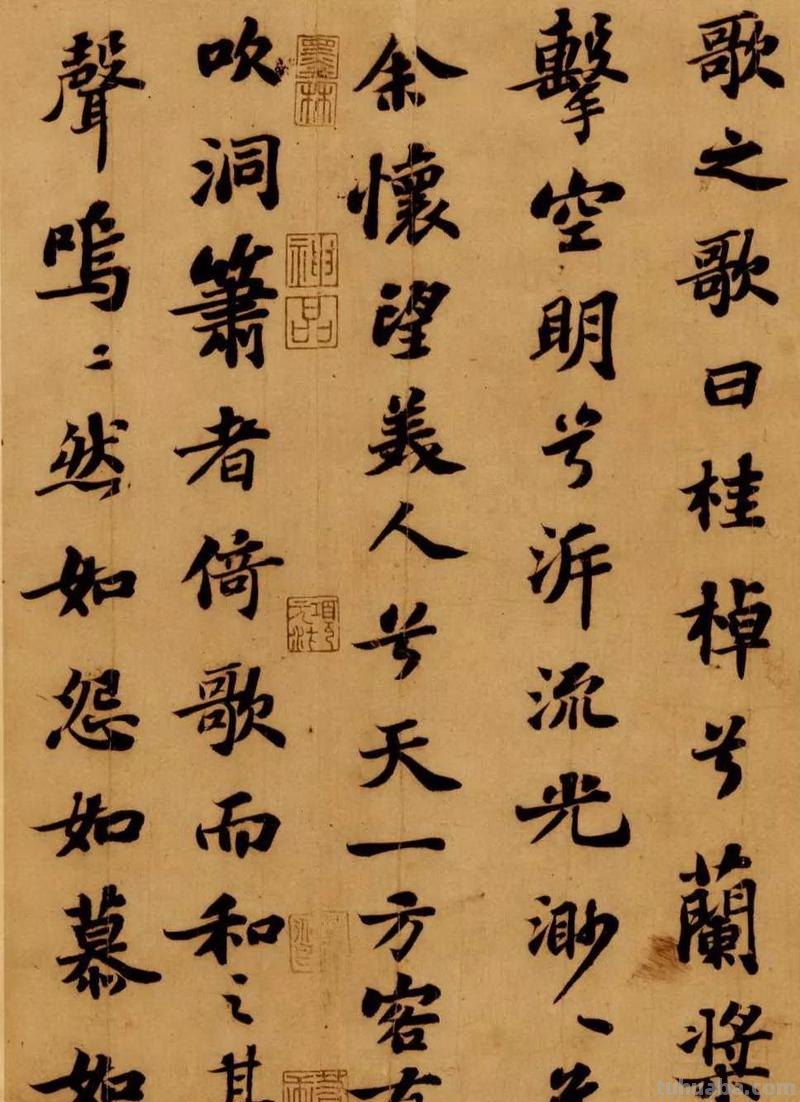 歌之歌曰桂棹兮蘭槳
擊空明兮泝流光渺〻兮
余懷望美人兮天一方客有
吹洞簫者倚歌而和之其
聲嗚〻然如怨如慕如
墨林
神品
tuhuaba.com